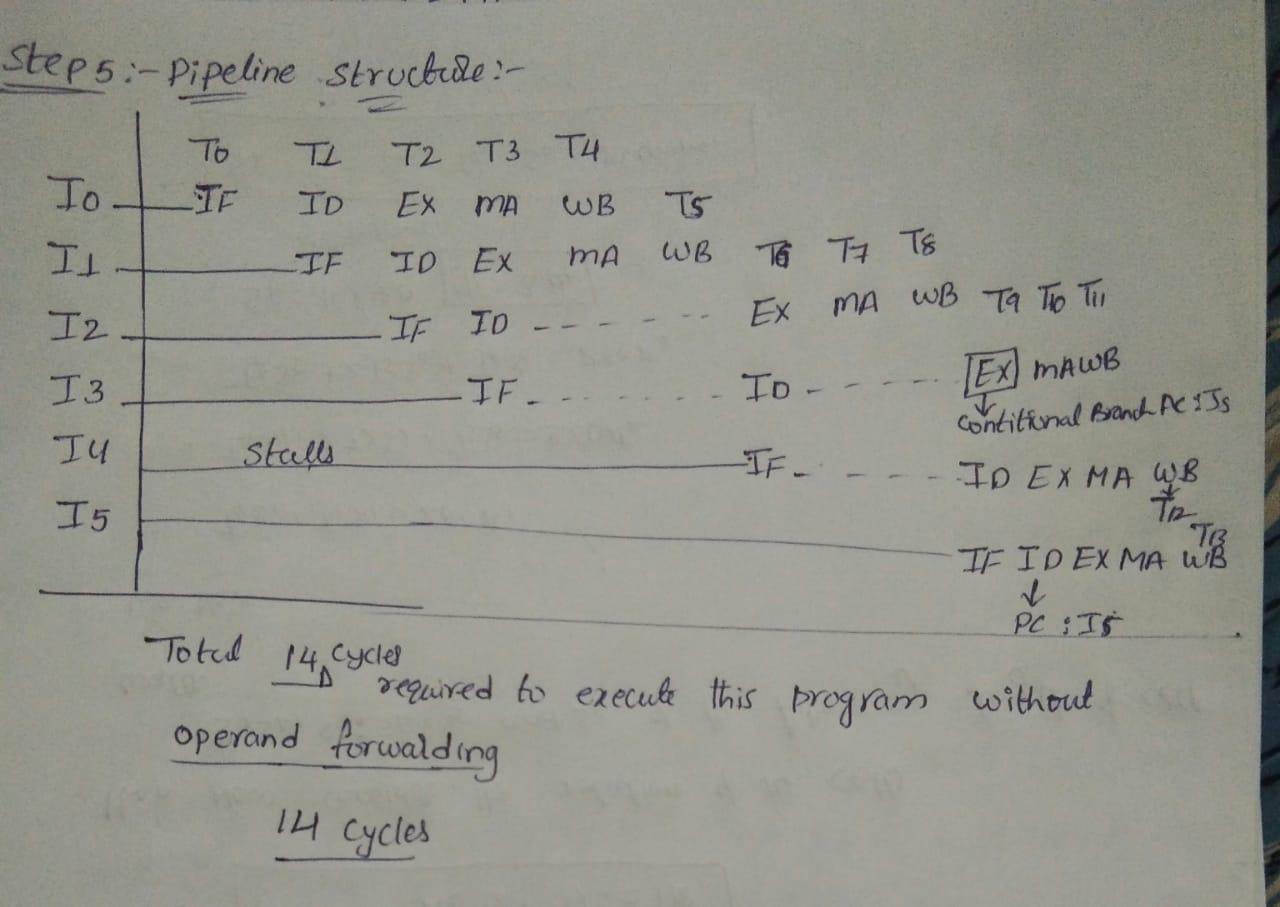 Step 5 :- Pipeline structure :-
T0 T1 T2 T3 T4
I0 IF ID EX MA WB T5
I1 IF ID EX MA WB T6 T7 T8
I2 IF ID - - - - - - EX MA WB T9 T10 T11
I3 IF - - - - - - - ID - - - - - EX MA WB
Contitional Branch PC : I5
I4 Stalls IF - - - - - ID EX MA WB
T12
I5 T13
IF ID EX MA WB
PC : I5
Total 14 cycles
required to execute this program without
operand forwalding
14 cycles